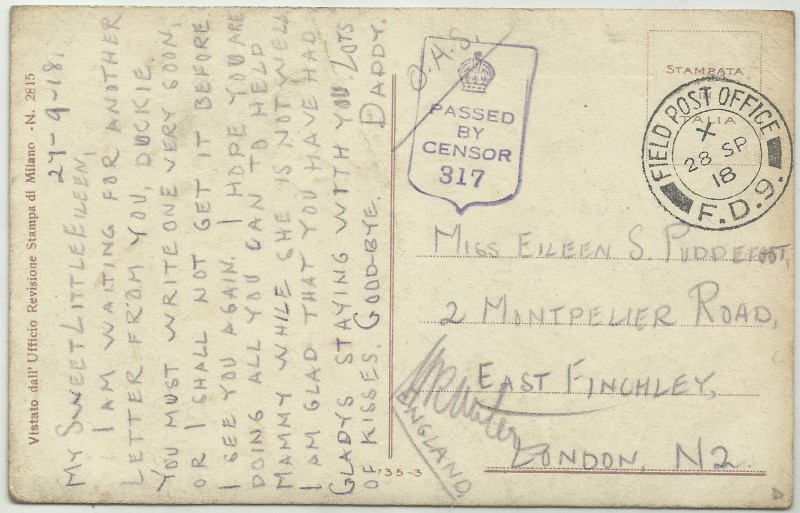 Vistato dall' Ufficio Revisione Stampa di Milano - N. 2815
27-9-18.
MY SWEET LITTLE EILEEN,
I AM WAITING FOR ANOTHER
LETTER FROM YOU, DUCKIE.
YOU MUST WRITE ONE VERY SOON,
OR I SHALL NOT GET IT BEFORE
I SEE YOU AGAIN. I HOPE YOU ARE
DOING ALL YOU CAN TO HELP
MAMMY WHILE SHE IS NOT WELL.
I AM GLAD THAT YOU HAVE HAD
GLADYS STAYING WITH YOU. LOTS
OF KISSES. GOOD-BYE. DADDY.
735-3
O.A.S.
PASSED
BY
CENSOR
317
STAMPATA
IN
ITALIA
FIELD POST OFFICE
X
28 SP
18
F.D.9.
MISS EILEEN S. PUDDEFOOT,
2 MONTPELIER ROAD,
EAST FINCHLEY,
LONDON, N2.
ENGLAND.